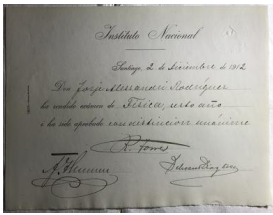 Instituto Nacional
Santiago, 2 de diciembre de 1912
Don Jorje Alessandri Rodríguez
ha rendido exámen de Física, sesto año
i ha sido aprobado con distincion unánime